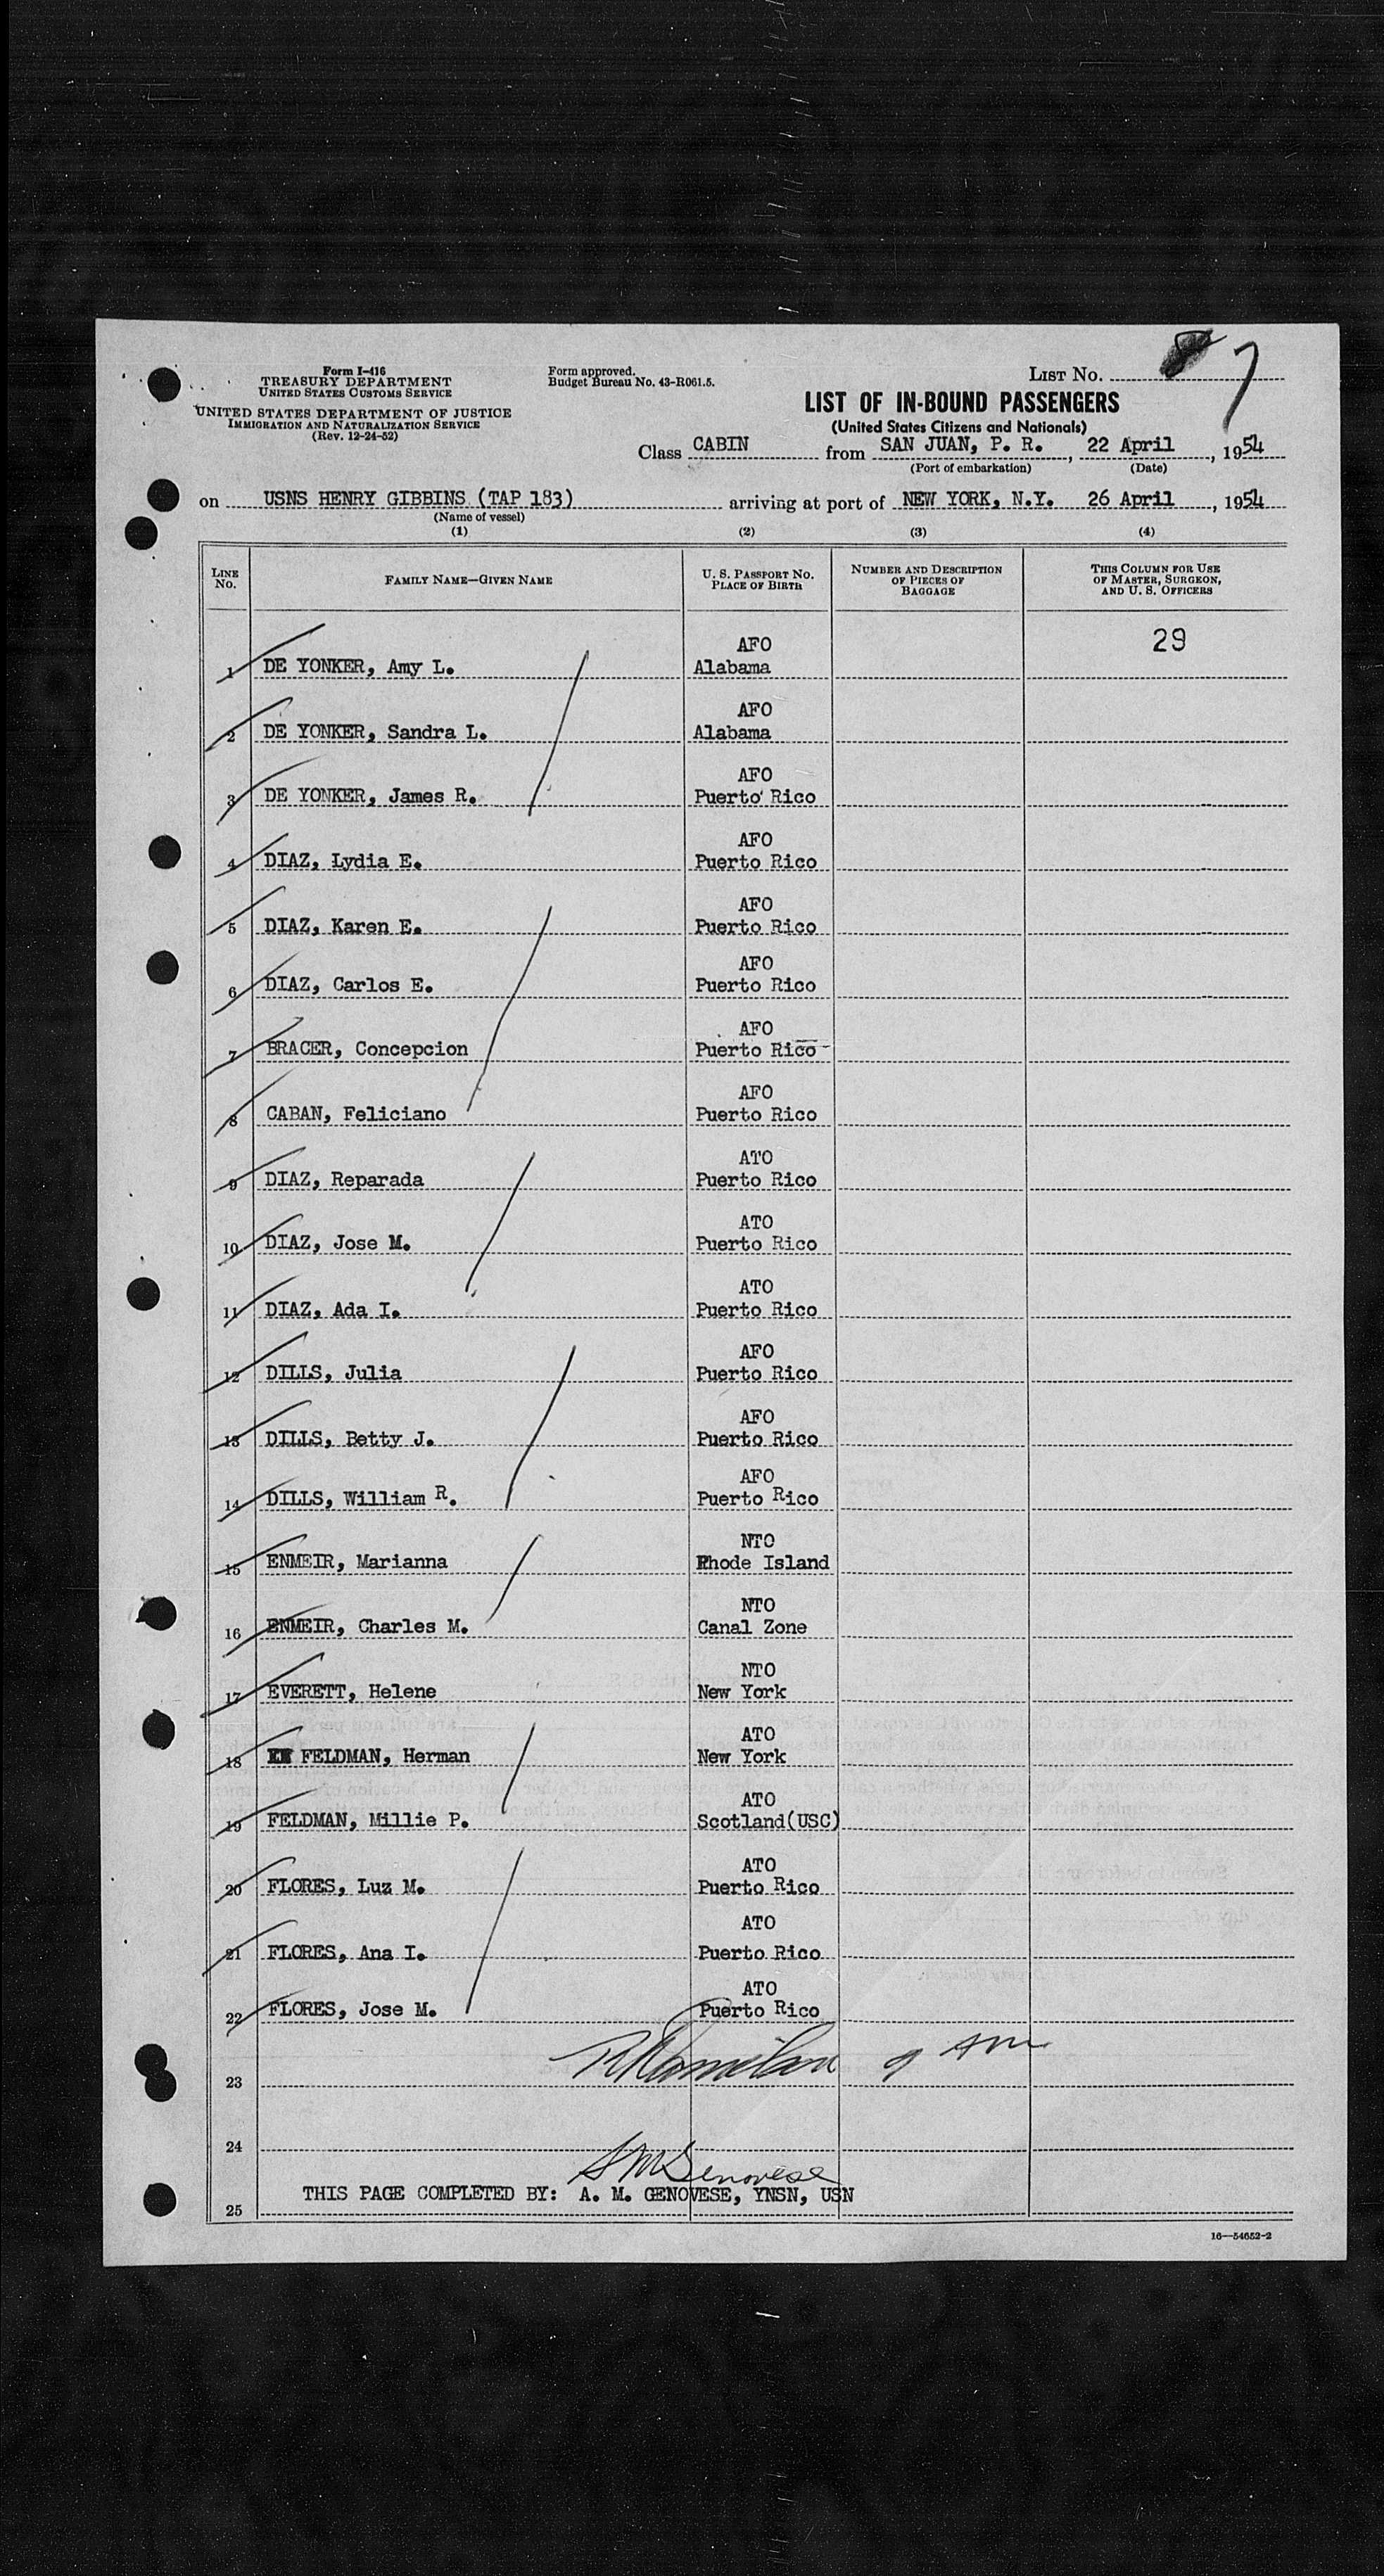 Form I-416
TREASURY DEPARTMENT
UNITED STATES CUSTOMS SERVICE
UNITED STATES DEPARTMENT OF JUSTICE
IMMIGRATION AND NATURALIZATION SERVICE
(Rev. 12-24-52)
Form approved.
Budget Bureau No. 43-R061.5.
LIST NO. 7
LIST OF IN-BOUND PASSENGERS
(United States Citizens and Nationals)
Class CABIN from SAN JUAN, P. R., 22 April, 1954
(Port of embarkation) (Date)
on USNS HENRY GIBBINS (TAP 183) arriving at port of NEW YORK, N.Y. 26 April, 1954
(Name of vessel)
(1) (2) (3) (4)
LINE NO. FAMILY NAME—GIVEN NAME U. S. PASSPORT NO. PLACE OF BIRTH NUMBER AND DESCRIPTION OF PIECES OF BAGGAGE THIS COLUMN FOR USE OF MASTER, SURGEON, AND U. S. OFFICERS
AFO 29
1 DE YONKER, Amy L. Alabama
AFO
2 DE YONKER, Sandra L. Alabama
AFO
3 DE YONKER, James R. Puerto Rico
AFO
4 DIAZ, Lydia E. Puerto Rico
AFO
5 DIAZ, Karen E. Puerto Rico
AFO
6 DIAZ, Carlos E. Puerto Rico
AFO
7 BRACER, Concepcion Puerto Rico
AFO
8 CABAN, Feliciano Puerto Rico
ATO
9 DIAZ, Reparada Puerto Rico
ATO
10 DIAZ, Jose M. Puerto Rico
ATO
11 DIAZ, Ada I. Puerto Rico
AFO
12 DILLS, Julia Puerto Rico
AFO
13 DILLS, Betty J. Puerto Rico
AFO
14 DILLS, William R. Puerto Rico
NTO
15 ENMEIR, Marianna Rhode Island
NTO
16 ENMEIR, Charles M. Canal Zone
NTO
17 EVERETT, Helene New York
ATO
18 FELDMAN, Herman New York
ATO
19 FELDMAN, Millie P. Scotland(USC)
ATO
20 FLORES, Luz M. Puerto Rico
ATO
21 FLORES, Ana I. Puerto Rico
ATO
22 FLORES, Jose M. Puerto Rico
23
24
THIS PAGE COMPLETED BY: A. M. GENOVESE, YNSN, USN
25
16—54652-2